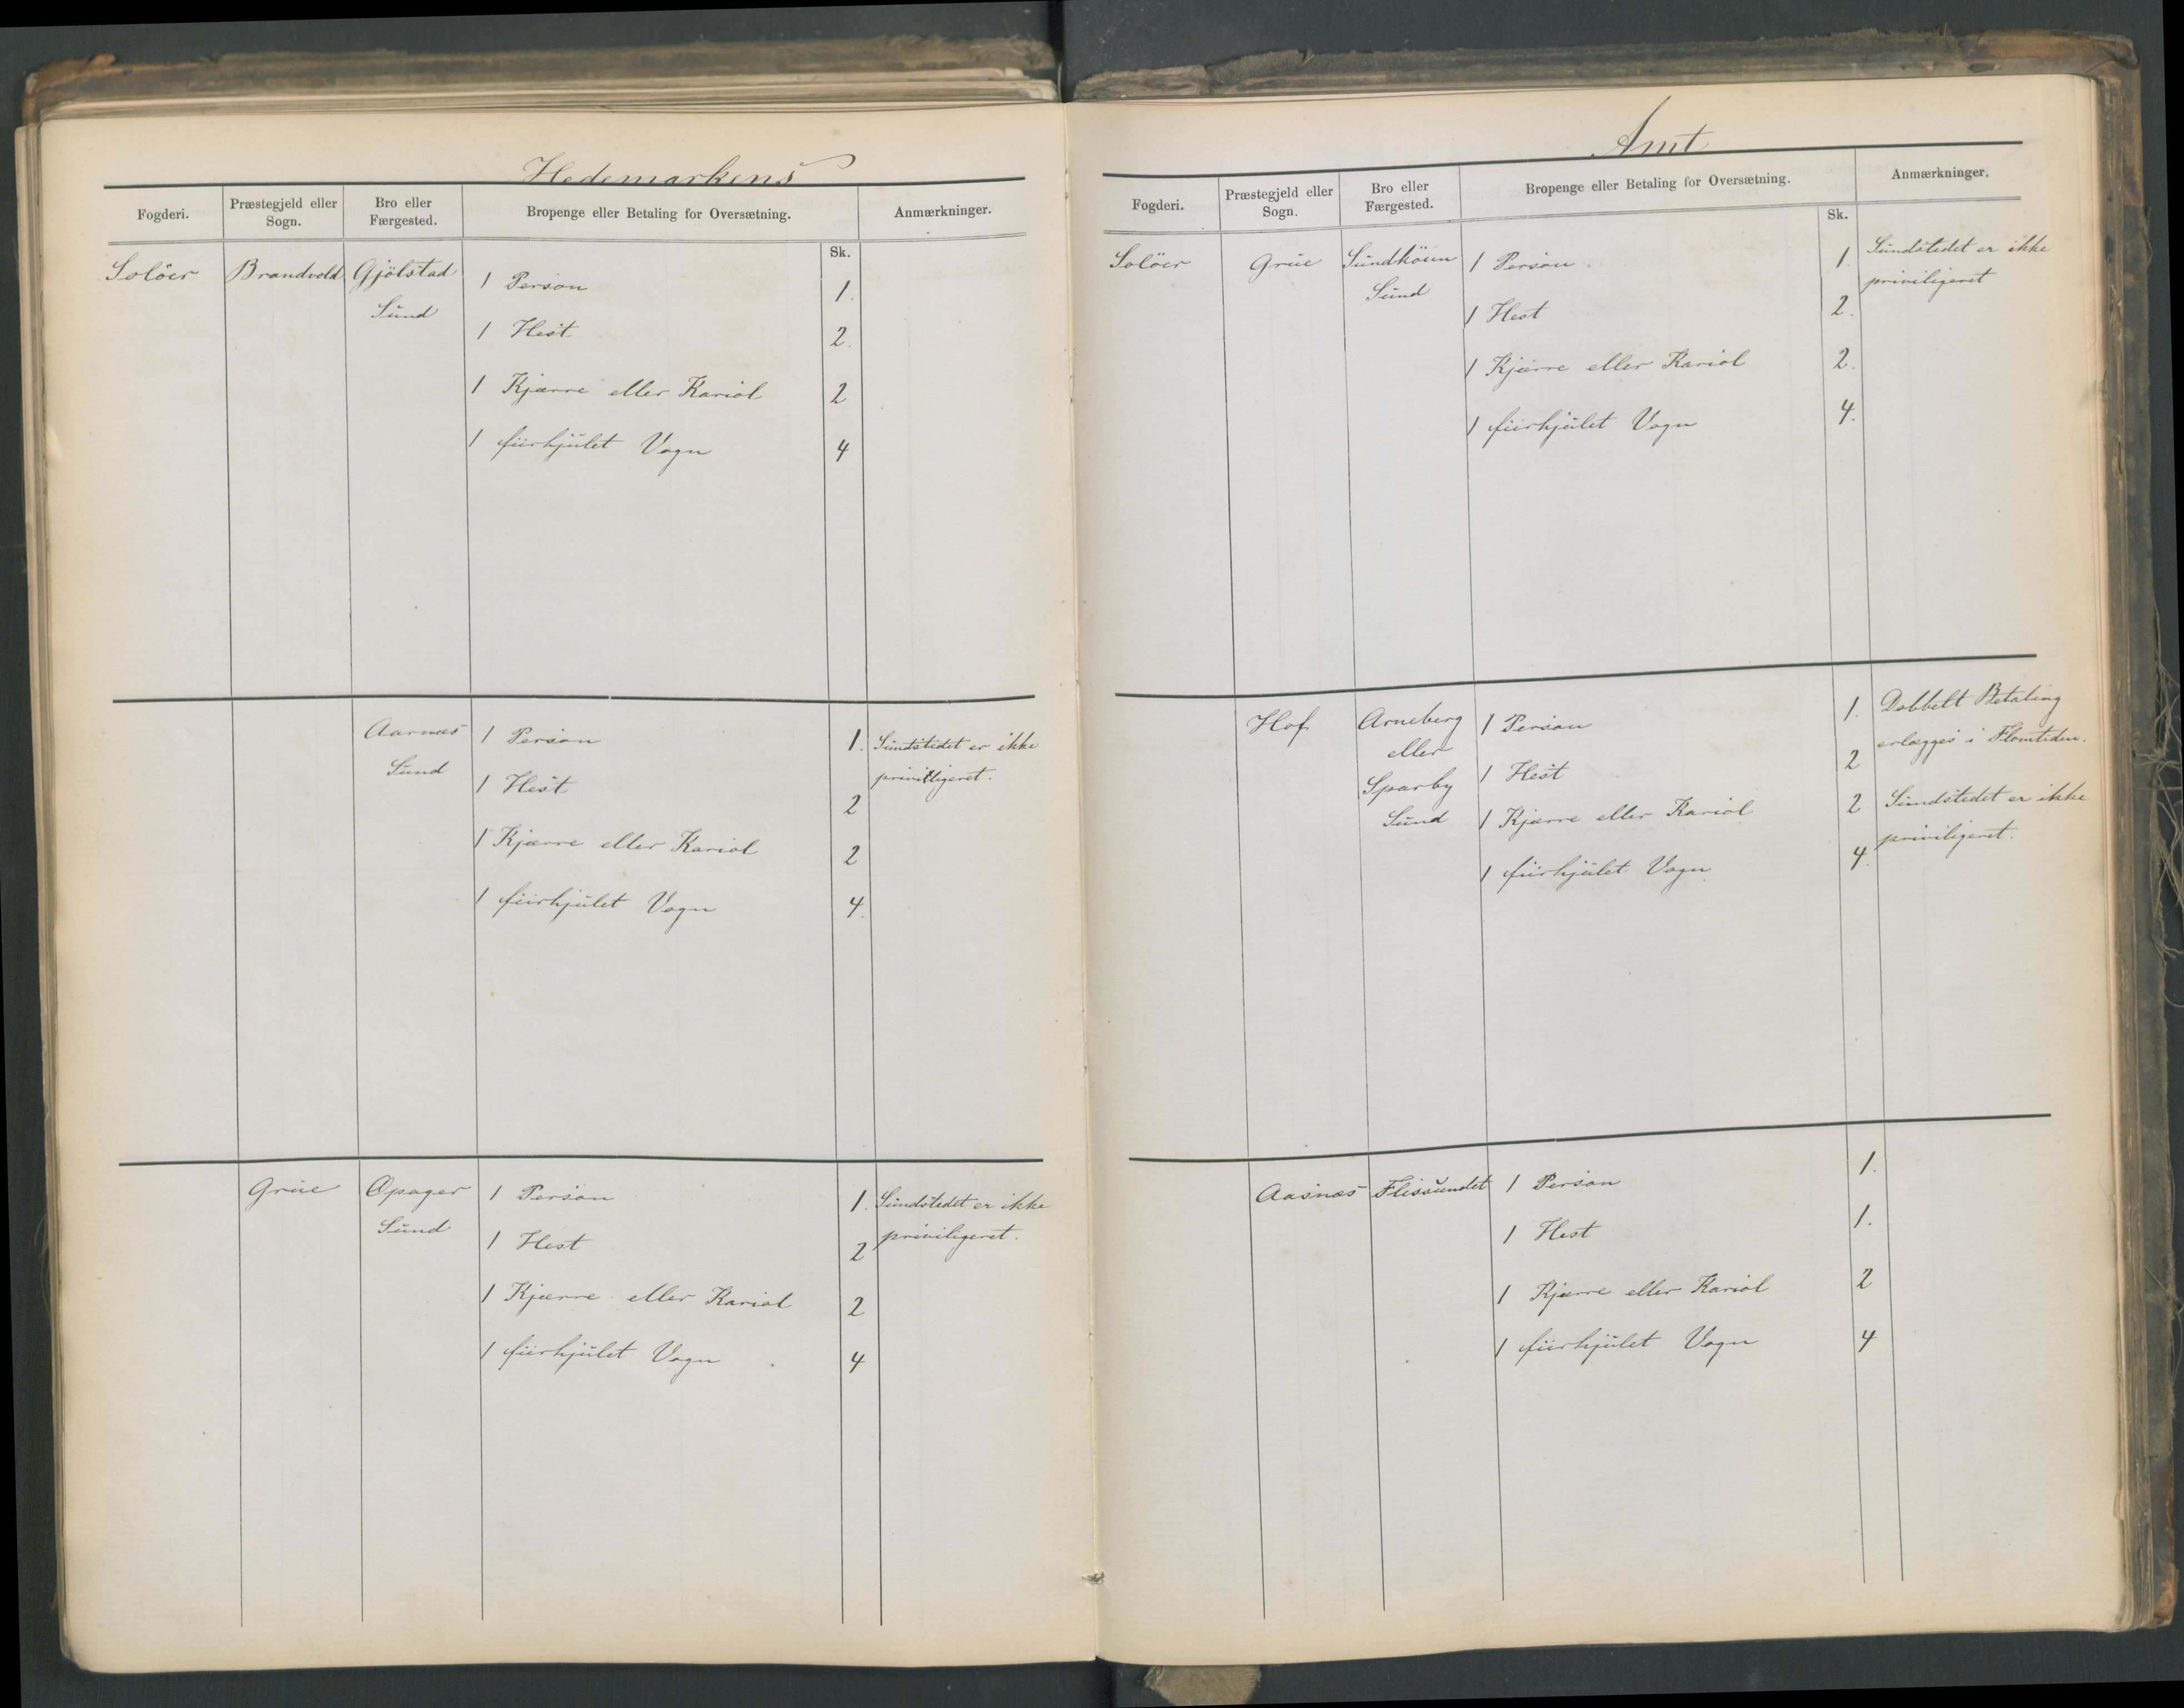 Hedemarkens
Fogderi. Præstegjeld eller Sogn. Bro eller Færgested. Bropenge eller Betaling for Oversætning. Anmærkninger.
Sk.
Solöer Brandvold Gjölstad Sund
1 Person 1.
1 Hest 2.
1 Kjærre eller Kariol 2
1 fiirhjulet Vogn 4
Aarnæs Sund
1 Person 1. Sundstedet er ikke
1 Hest 2 priviligeret.
1 Kjærre eller Kariol 2
1 fiirhjulet Vogn 4.
Grue Opager Sund
1 Person 1. Sundstedet er ikke
1 Hest 2 priviligeret.
1 Kjærre eller Kariol 2
1 fiirhjulet Vogn 4
Amt
Fogderi. Præstegjeld eller Sogn. Bro eller Færgested. Bropenge eller Betaling for Oversætning. Anmærkninger.
Sk.
Solöer Grue Sund
1 Person 1. Sundstedet er ikke
1 Hest 2. priviligeret
1 Kjærre eller Kariol 2.
1 fiirhjulet Vogn 4.
Hof Arneberg eller Sparby Sund
1 Person 1. Dobbelt Betaling
erlægges i Flomtiden.
1 Hest 2
1 Kjærre eller Kariol 2 Sundstedet er ikke
priviligeret.
1 fiirhjulet Vogn 4.
Aasnæs Flissundet
1 Person 1.
1 Hest 1.
1 Kjærre eller Kariol 2
1 fiirhjulet Vogn 4